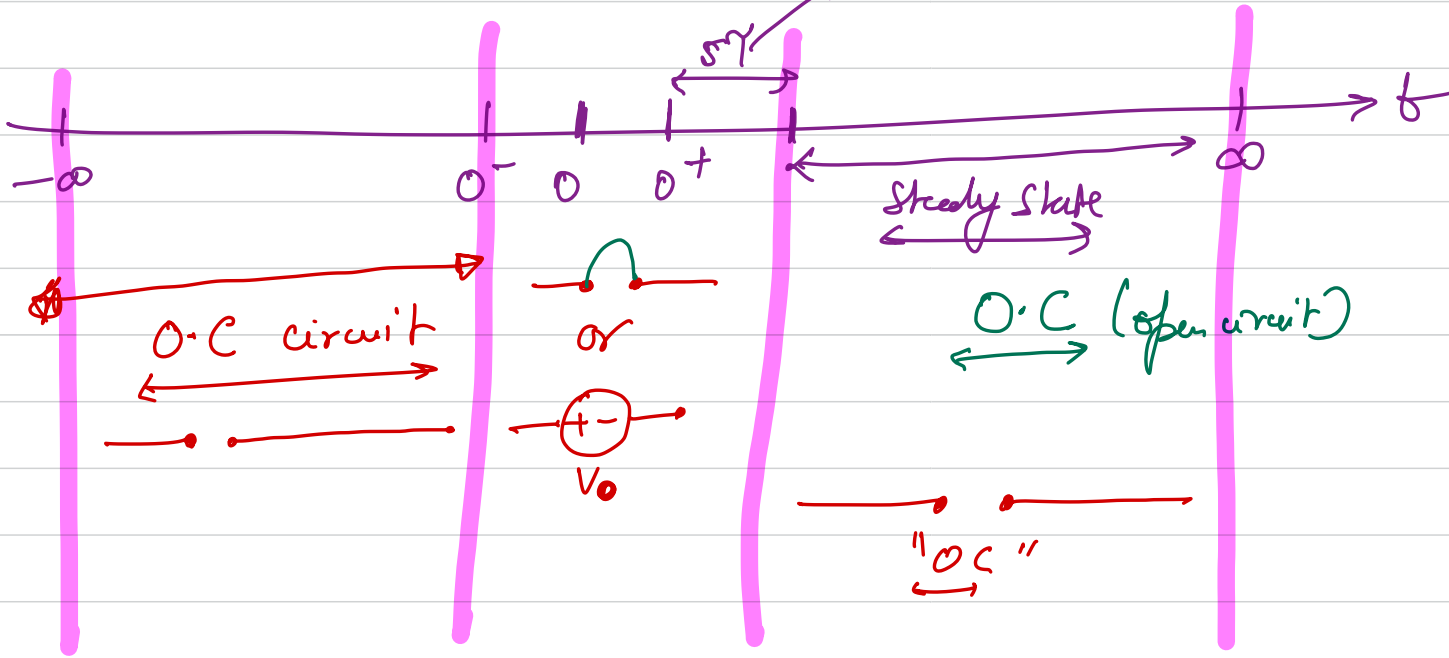 5τ
t
-∞ 0⁻ 0 0⁺ ∞
Steady State
O.C circuit
or
O.C (open circuit)
+ -
V₀
"OC"